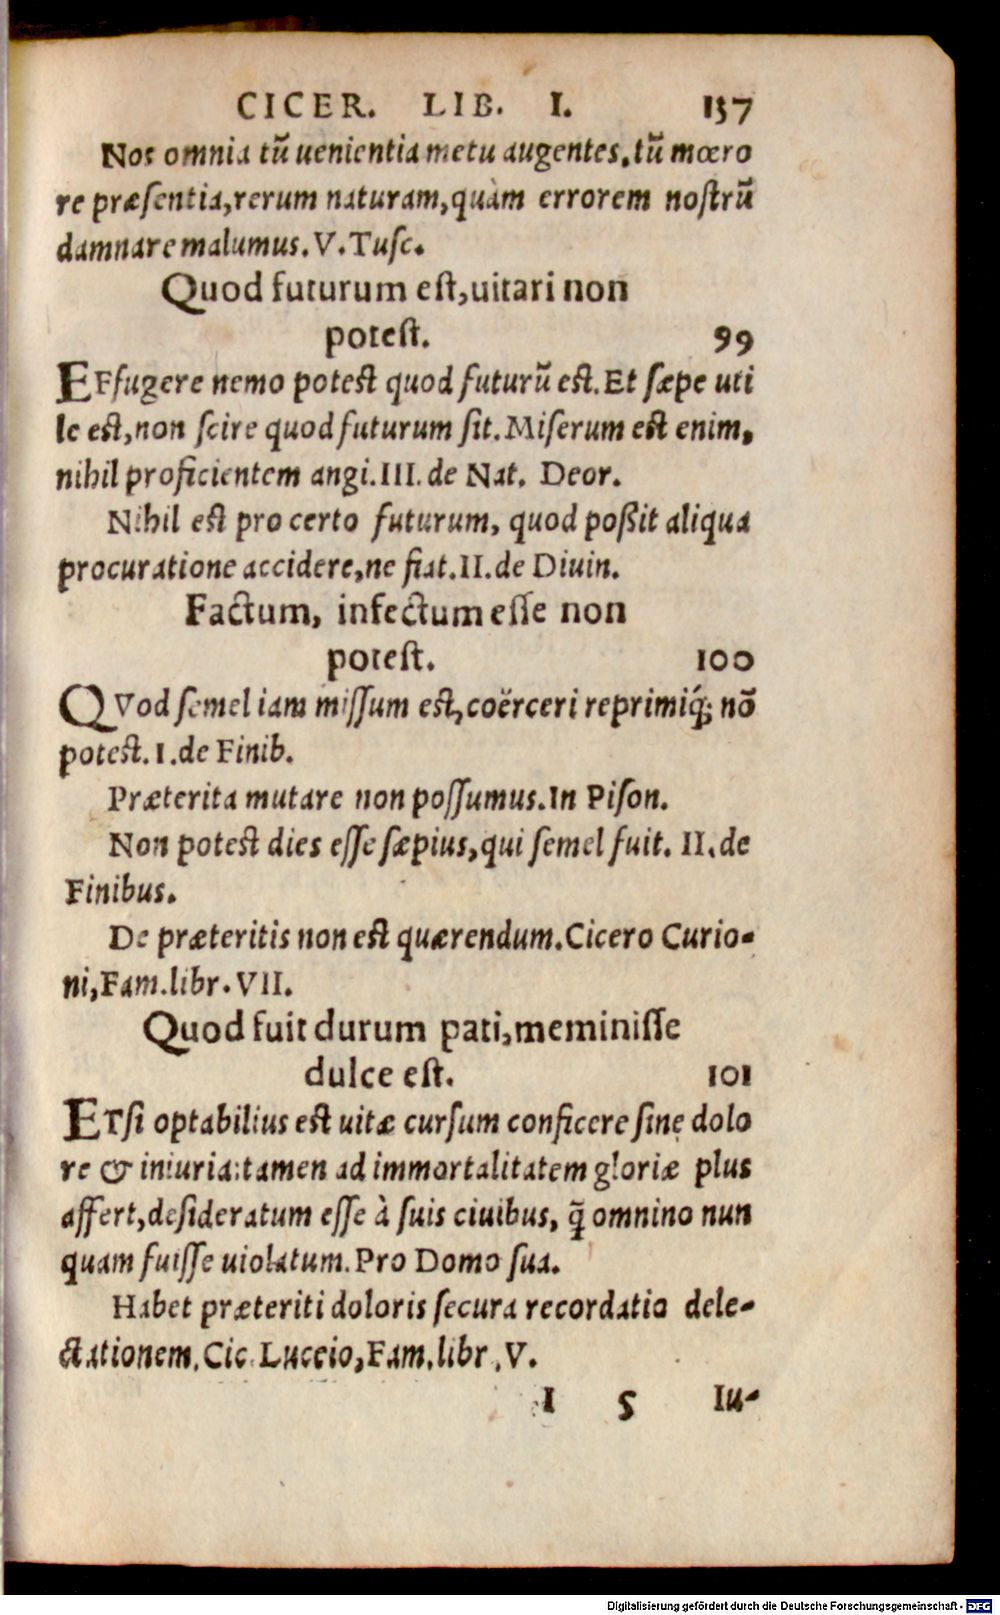 CICER. LIB. I. 137
Nos omnia tũ uenientia metu augentes, tũ mœro
re præsentia, rerum naturam, quàm errorem nostrũ
damnare malumus. V. Tusc.
Quod futurum est, uitari non
potest. 99
EFfugere nemo potest quod futurũ est. Et sæpe uti
le est, non scire quod futurum sit. Miserum est enim,
nihil proficientem angi. III. de Nat. Deor.
Nihil est pro certo futurum, quod poßit aliqua
procuratione accidere, ne fiat. II. de Diuin.
Factum, infectum esse non
potest. 100
QVod semel iam missum est, coërceri reprimiq́; nõ
potest. I. de Finib.
Præterita mutare non possumus. In Pison.
Non potest dies esse sæpius, qui semel fuit. II. de
Finibus.
De præteritis non est quærendum. Cicero Curio-
ni, Fam. libr. VII.
Quod fuit durum pati, meminisse
dulce est. 101
ETsi optabilius est uitæ cursum conficere sine dolo
re & iniuria: tamen ad immortalitatem gloriæ plus
affert, desideratum esse à suis ciuibus, q̃ omnino nun
quam fuisse uiolatum. Pro Domo sua.
Habet præteriti doloris secura recordatio dele-
ctationem. Cic. Lucceio, Fam. libr. V.
I 5 Iu-
Digitalisierung gefördert durch die Deutsche Forschungsgemeinschaft - DFG